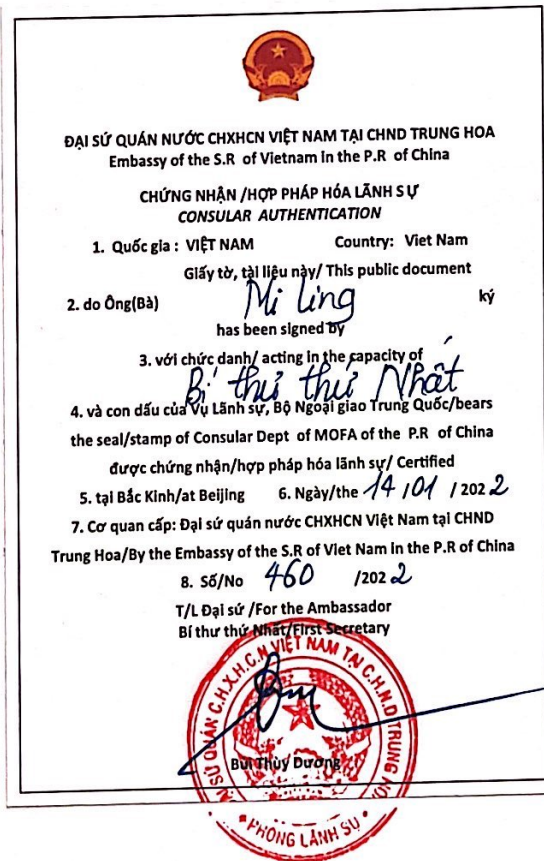 ĐẠI SỨ QUÁN NƯỚC CHXHCN VIỆT NAM TẠI CHND TRUNG HOA
Embassy of the S.R of Vietnam in the P.R of China
CHỨNG NHẬN /HỢP PHÁP HÓA LÃNH SỰ
CONSULAR AUTHENTICATION
1. Quốc gia : VIỆT NAM Country: Viet Nam
Giấy tờ, tài liệu này/ This public document
2. do Ông(Bà) Mi Ling ký
has been signed by
3. với chức danh/ acting in the capacity of
Bí thư thứ Nhất
4. và con dấu của Vụ Lãnh sự, Bộ Ngoại giao Trung Quốc/bears
the seal/stamp of Consular Dept of MOFA of the P.R of China
được chứng nhận/hợp pháp hóa lãnh sự/ Certified
5. tại Bắc Kinh/at Beijing 6. Ngày/the 14 /01 / 2022
7. Cơ quan cấp: Đại sứ quán nước CHXHCN Việt Nam tại CHND
Trung Hoa/By the Embassy of the S.R of Viet Nam in the P.R of China
8. Số/No 460 /2022
T/L Đại sứ /For the Ambassador
Bí thư thứ Nhất/First Secretary
SỨ QUÁN C.H.X.H.C.N VIỆT NAM TẠI C.H.N.D TRUNG
Bùi Thùy Dương
PHÒNG LÃNH SỰ